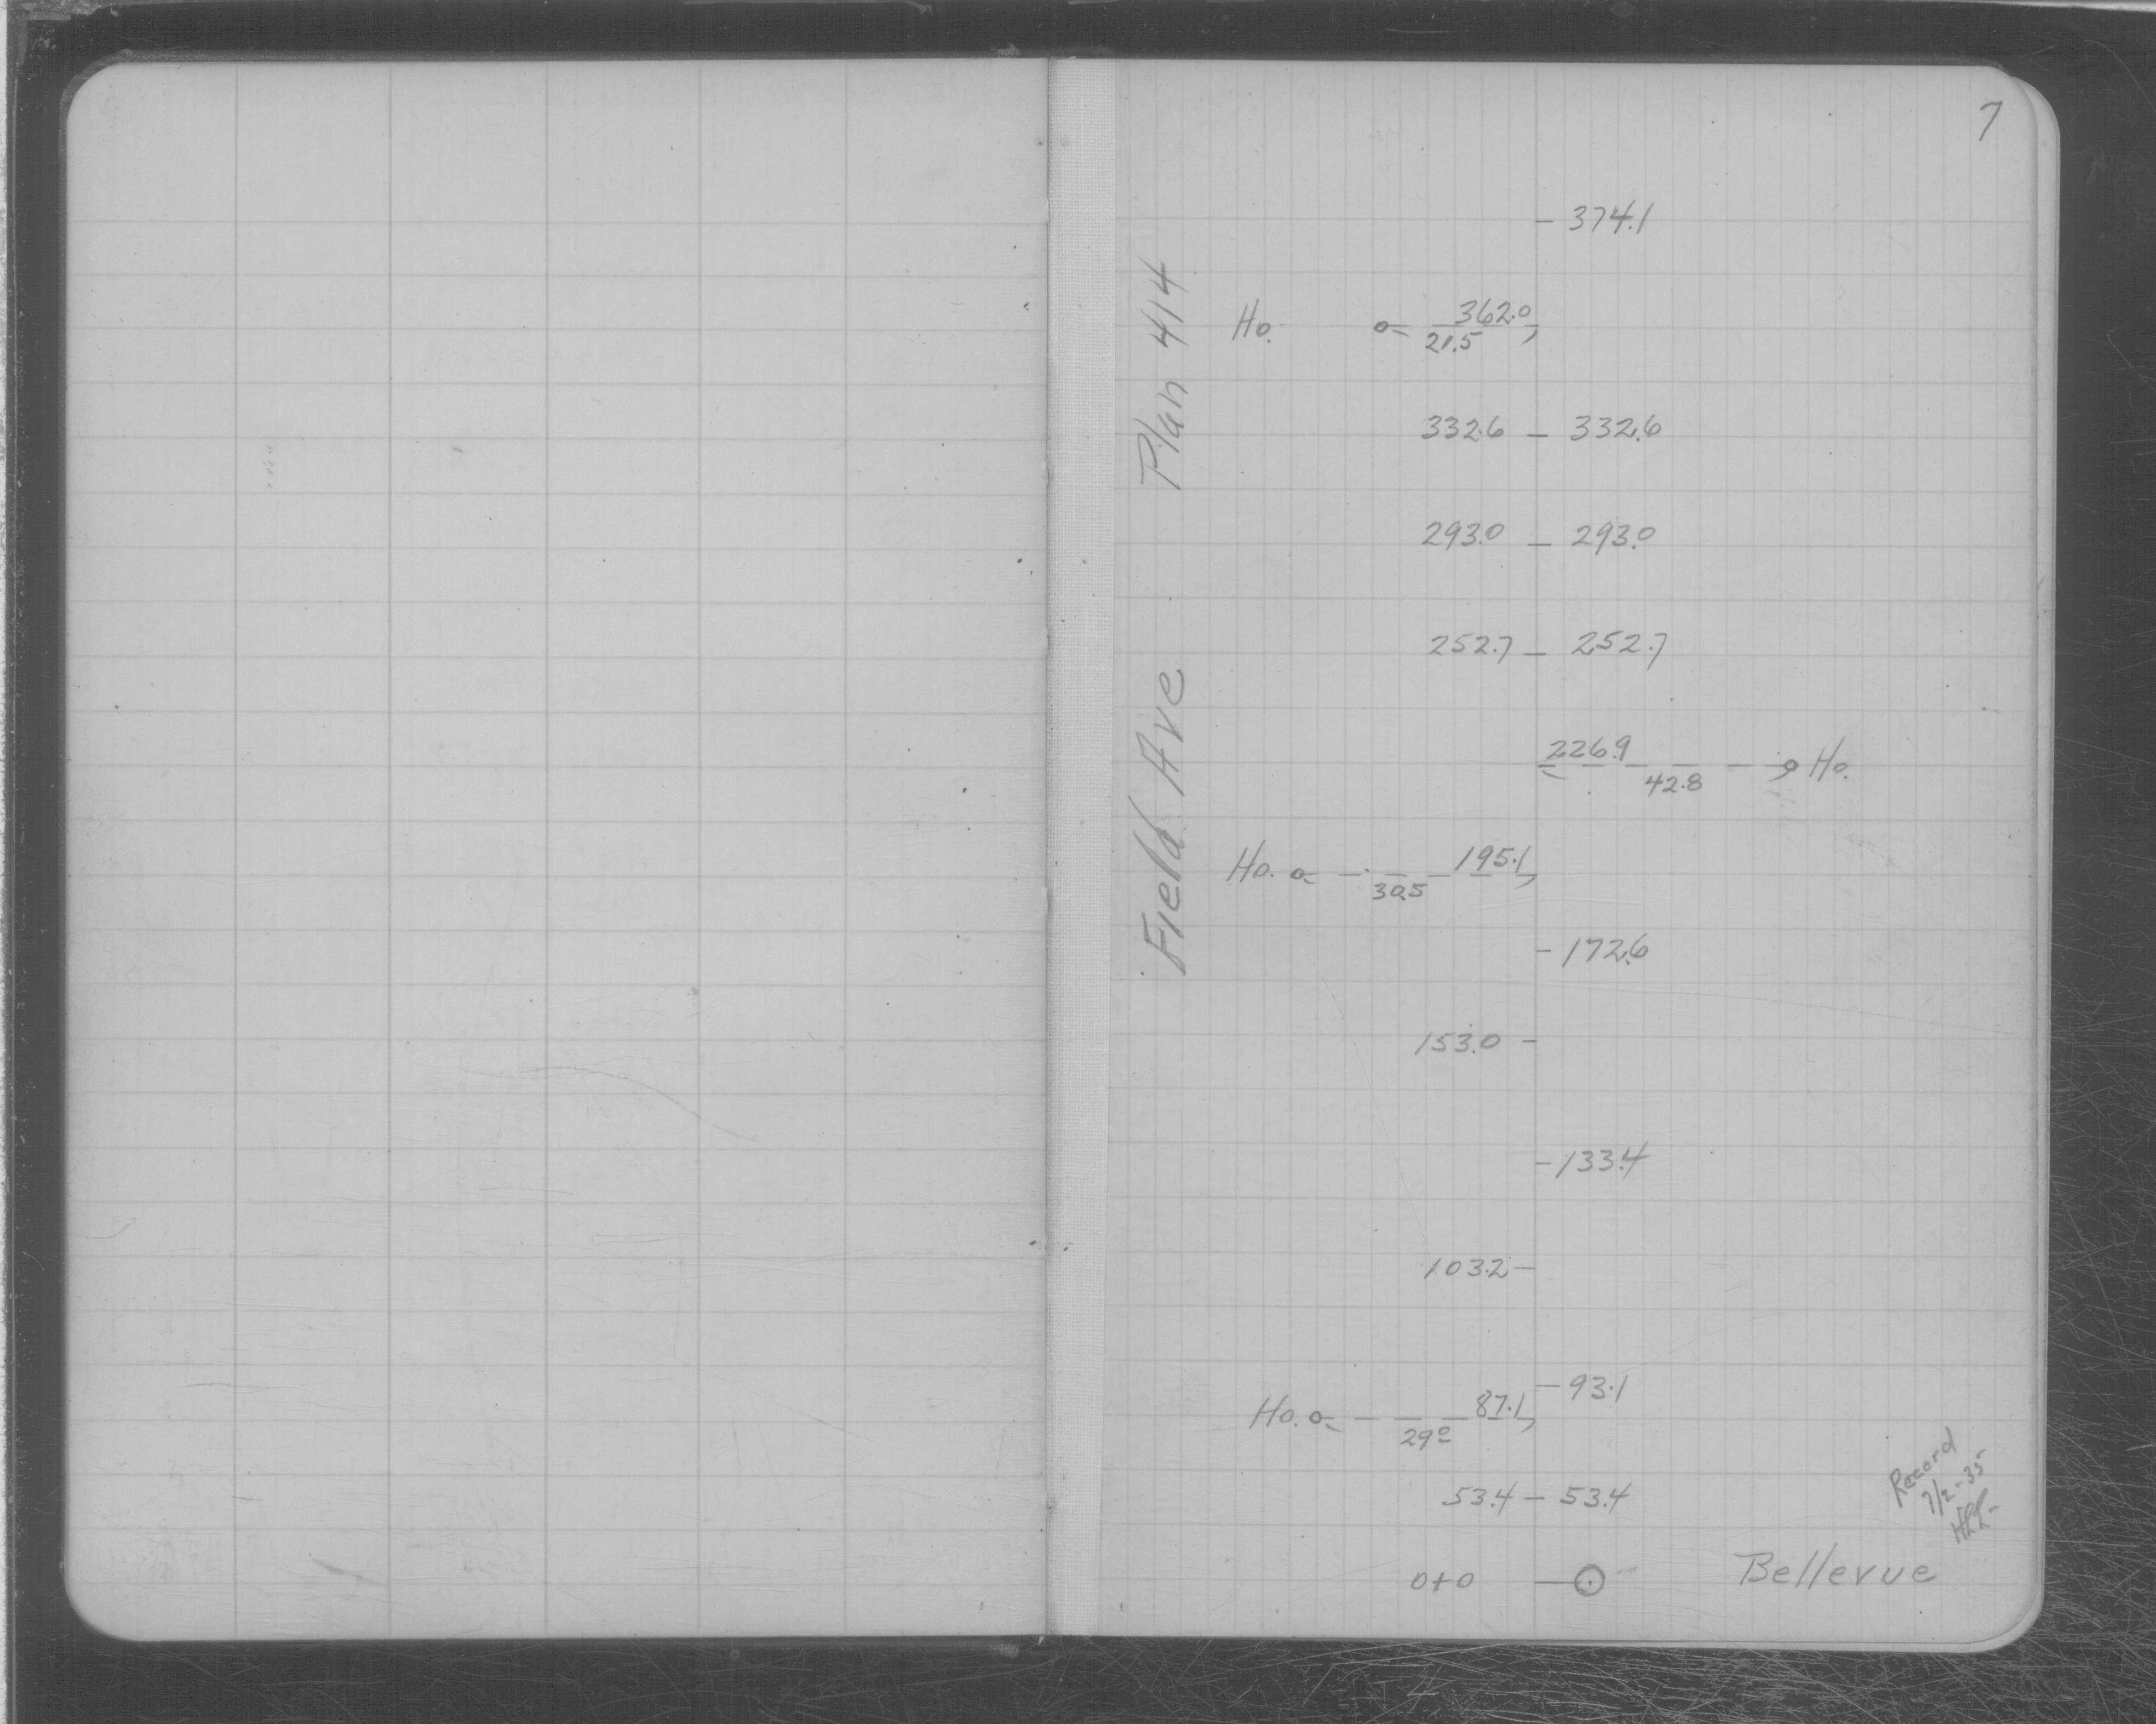 7
- 374.1
Ho. 362.0
21.5
332.6 - 332.6
293.0 - 293.0
252.7 - 252.7
226.9 Ho.
42.8
Ho. 195.1
30.5
- 172.6
153.0 -
- 133.4
103.2 -
- 93.1
Ho. 87.1
29º
53.4 - 53.4
0+0 Bellevue
Field Ave Plan 414
Record
7/2-35
HRR-